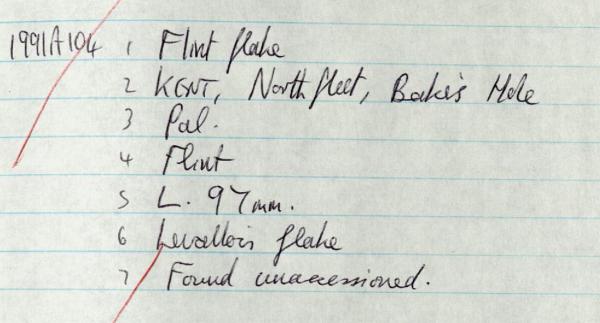 1991A104 1 Flint flake
2 KENT, Northfleet, Baker's Hole
3 Pal.
4 Flint
5 L. 97mm.
6 Levallois flake
7 Found unaccessioned.